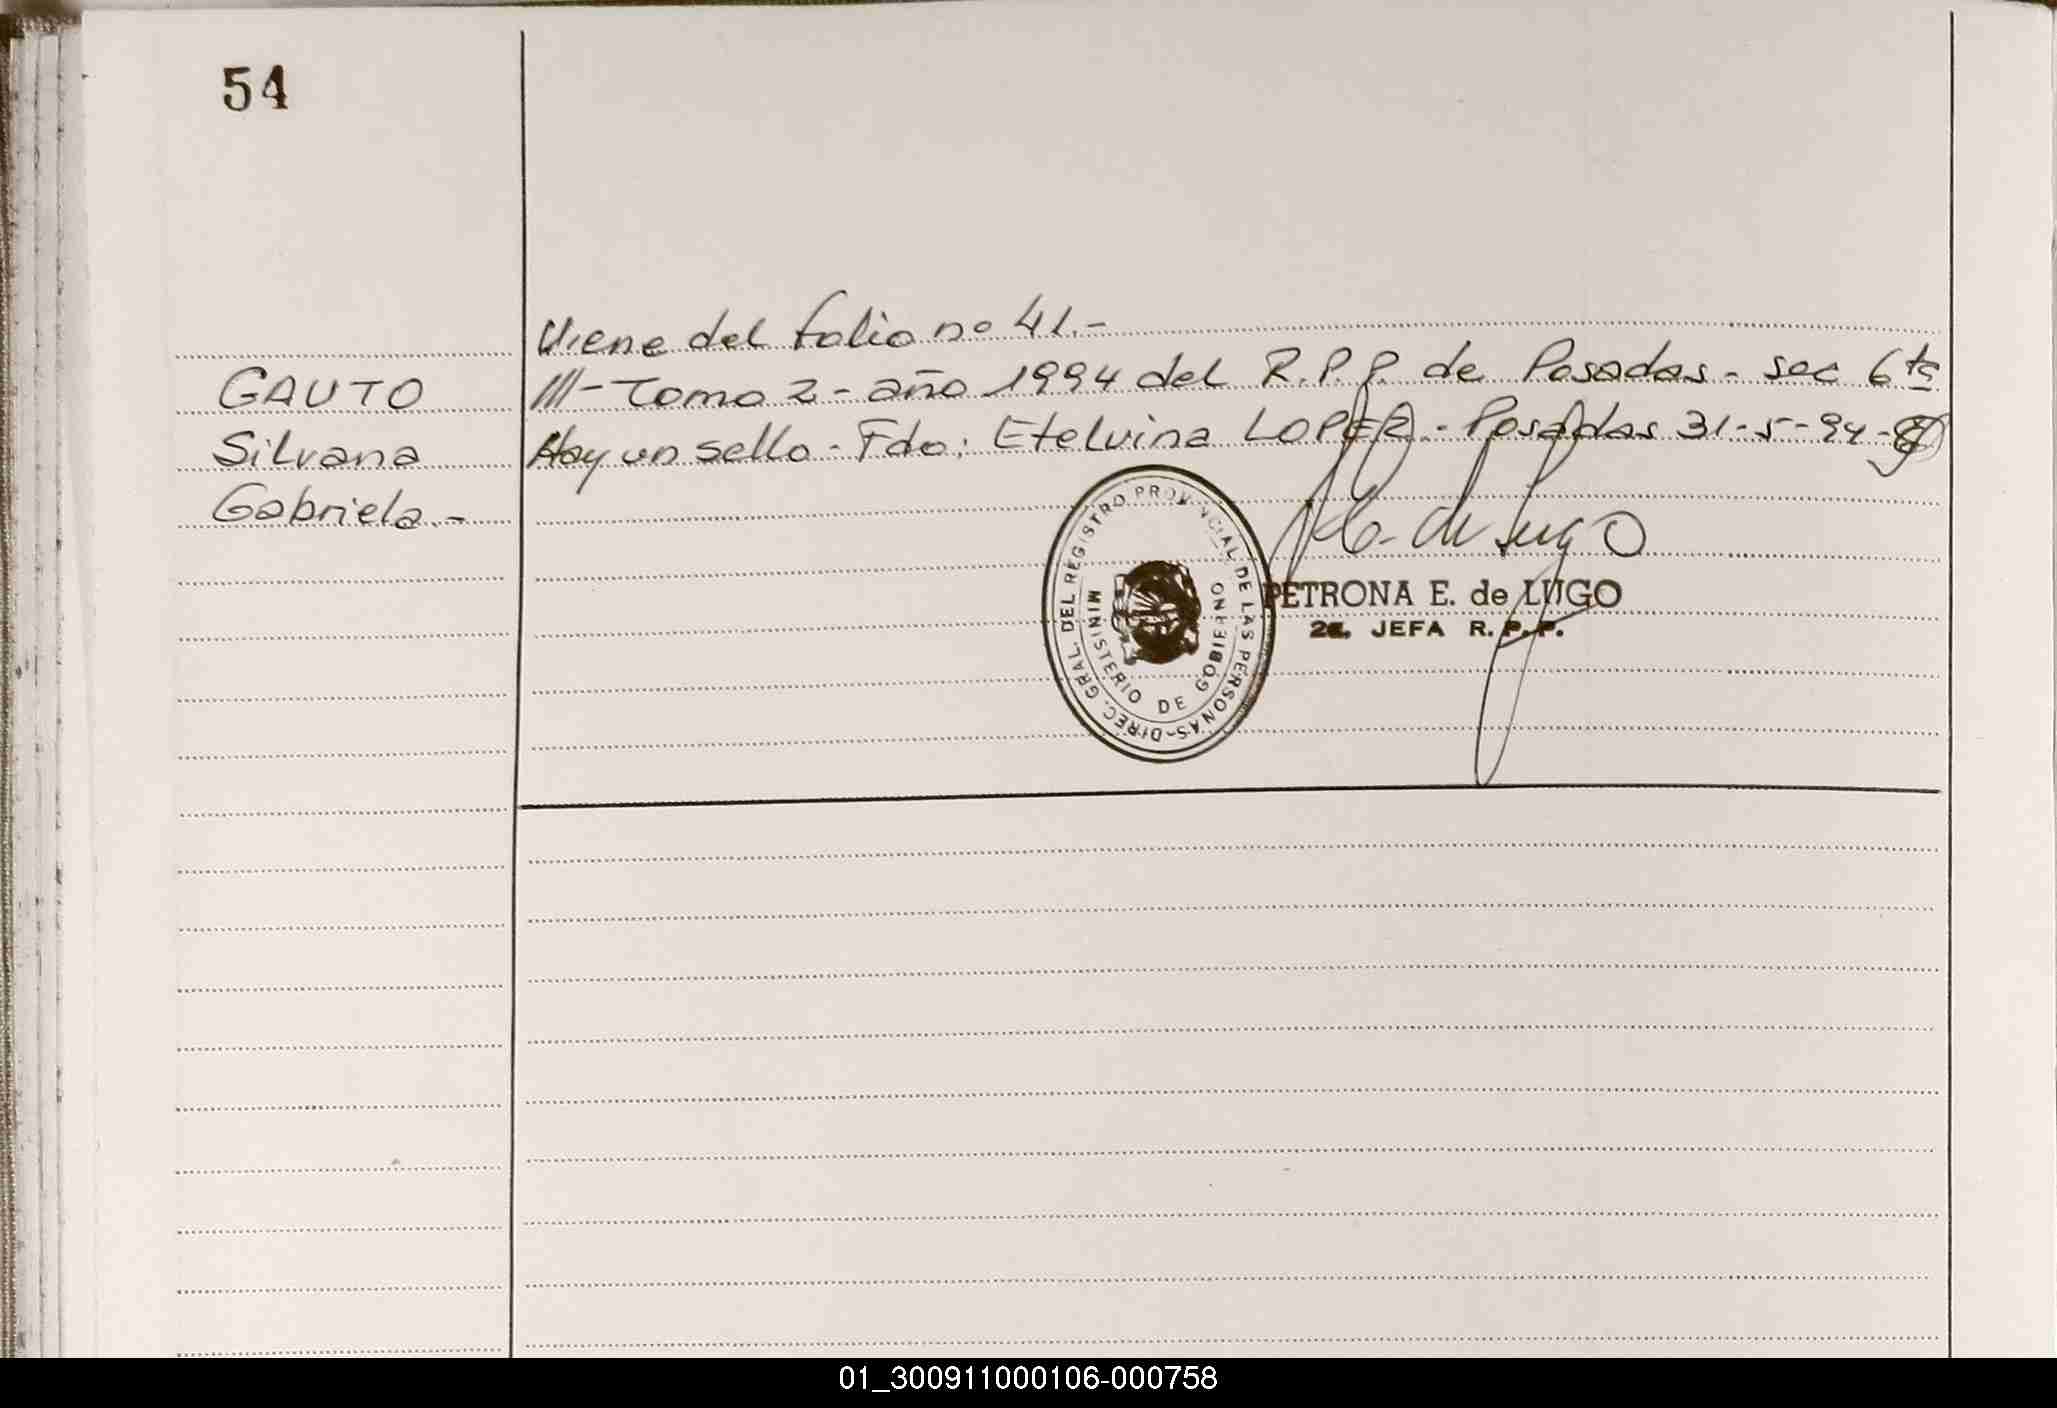 54
Viene del folio no 41.-
GAUTO
Silvana
Gabriela.-
///- Tomo 2 - año 1994 del R.P.P. de Posadas - sec 6ta
Hay un sello - Fdo: Etelvina LOPEZ.- Posadas 31-5-94-
DIREC. GRAL. DEL REGISTRO PROVINCIAL DE LAS PERSONAS-
MINISTERIO DE GOBIERNO
de Lugo
PETRONA E. de LUGO
2a. JEFA R. P. P.
01_300911000106-000758